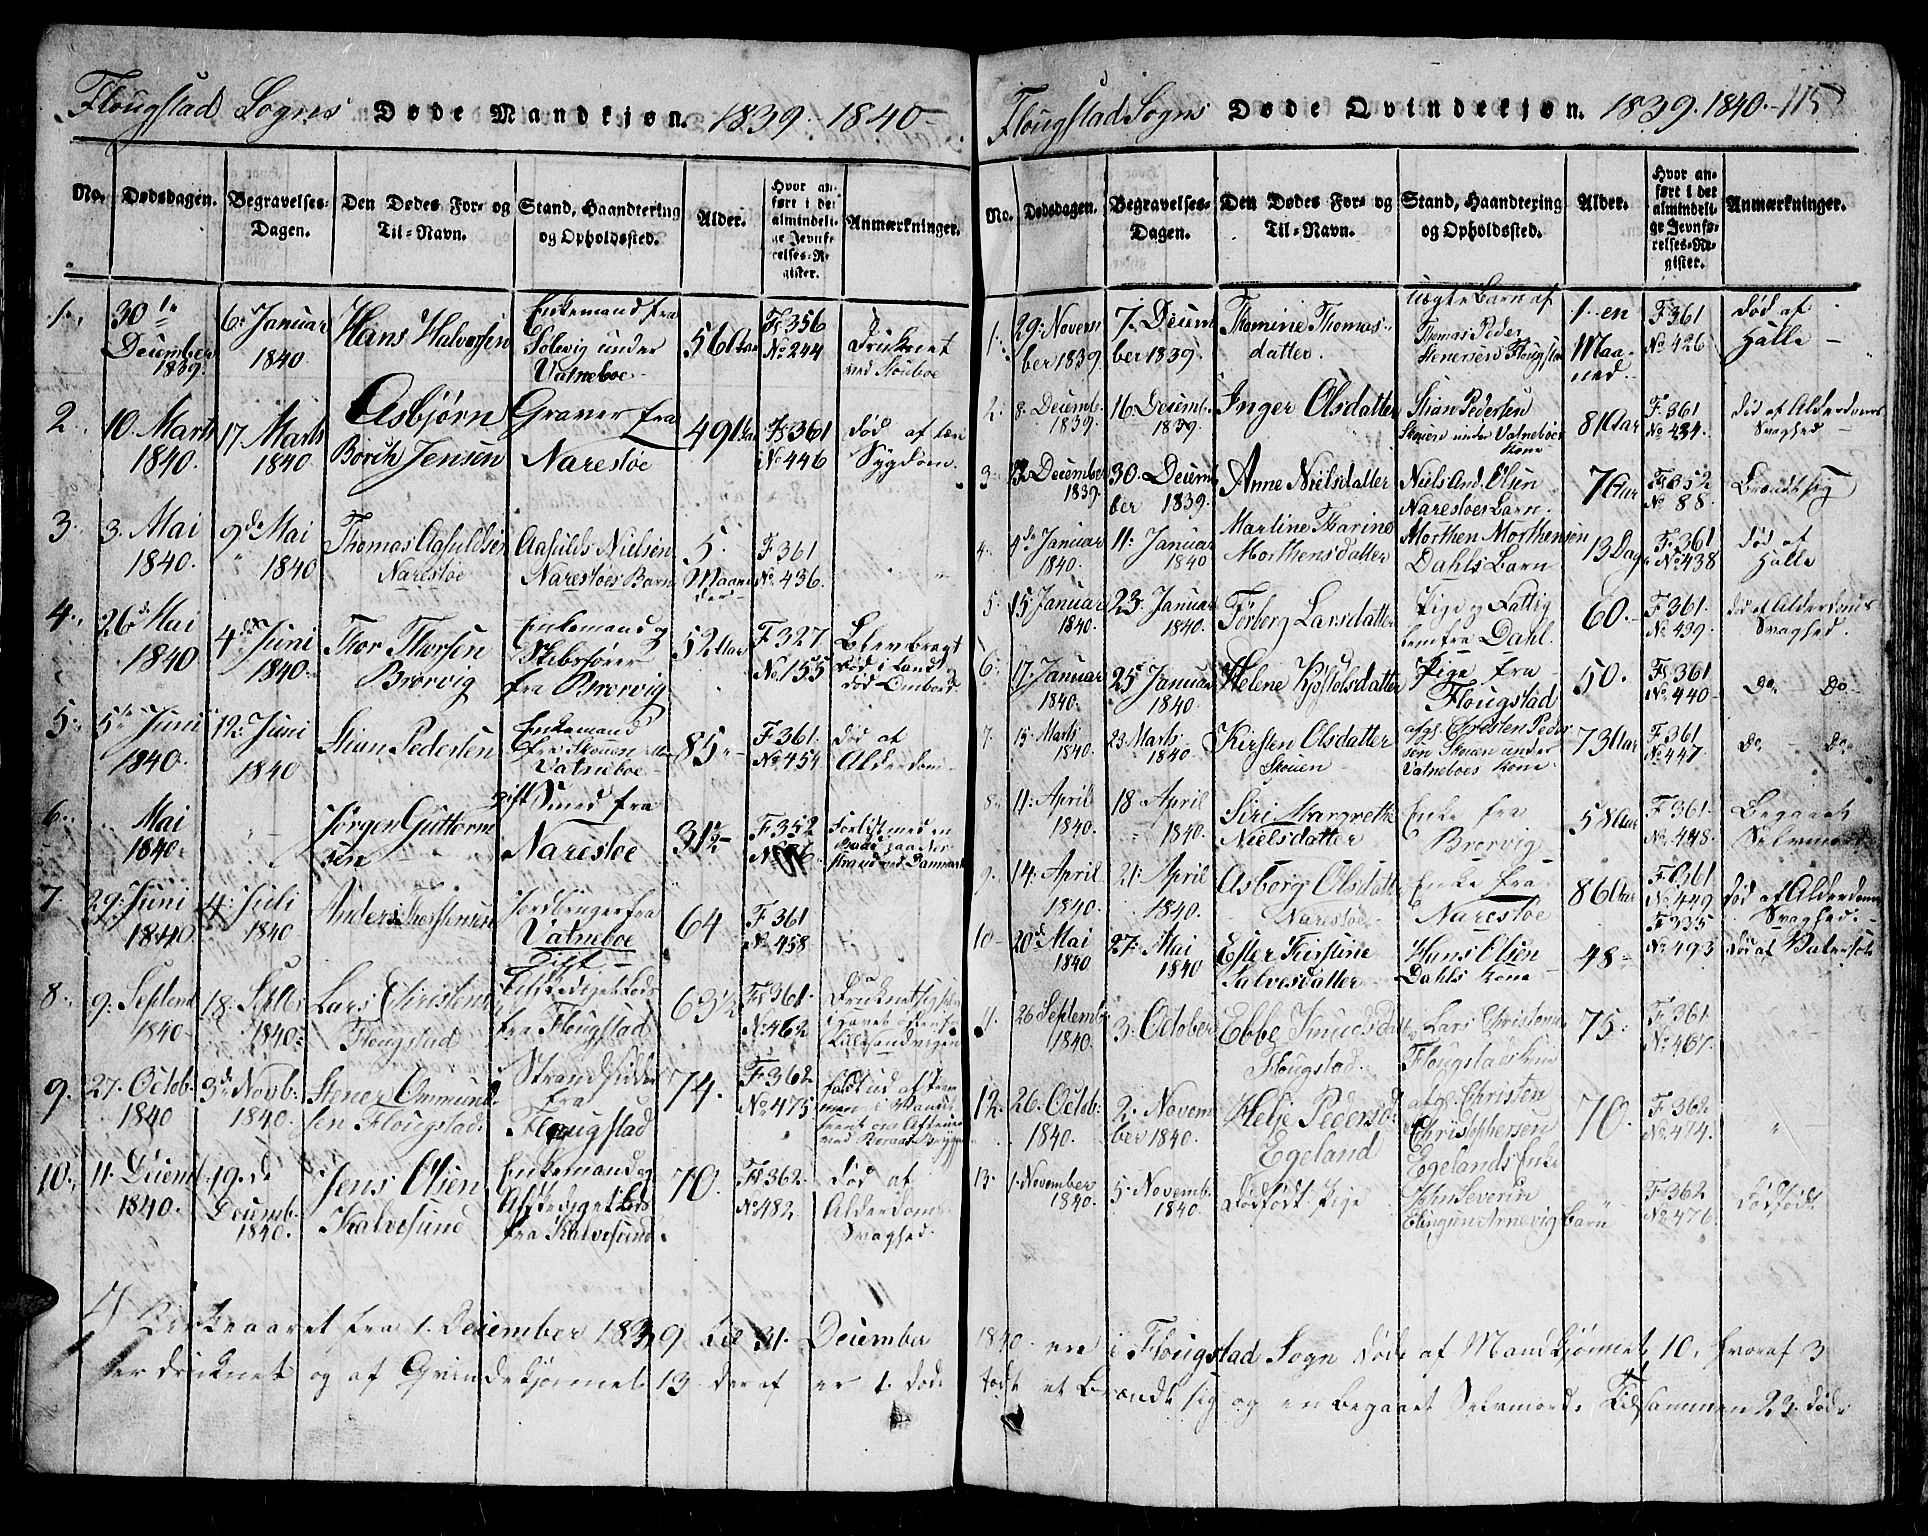 Flougstad Sogns Døde Mandkjøn. 1839. 1840
No. Dødsdagen. Begravelses-Dagen. Den Dødes For- og Til-Navn. Stand, Haandtering og Opholdssted. Alder. Hvor anført i det almindelige Jevnførelses-Register. Anmærkninger.
1. 30te December 1839. 6. Januar 1840 Hans Halvorsen Enkemand fra Solevig under Vatneboe 56 Aar Fl 356 No 244 Druknet ved
2 10. Marts 1840. 17. Marts 1840 Asbjørn Borch Jensen Graver fra Narestøe 49 Aar Fl 361 No 446 død af Sygdom.
3. 3. Mai 1840. 9de Mai 1840 Thomas Aasuldsen Narestøe Aasulds Nielsen Narestøes Barn 5. Maaneder F 361 No. 436.
4. 26de Mai 1840 4de Juni 1840. Thor Thorsen Brørvig Enkemand og fra Brørvig 52 Aar F 327 No. 155 Blev bragt død i Land død Ombord
5. 5te Juni 1840. 12. Juni 1840 Stian Pedersen Enkemand fra Skouen Vatneboe 85 F 361. No 454 Død af Alderdom
6. Mai 1840. Jørgen Guttormsen gift Smed fra Narestøe 31½ F 352 Forlist med en paa ved Danmark
7. 29. Juni 1840. 4. Juli 1840 Anders Thorstensen Jordbruger fra Vatneboe Gift 64 F 361 No 458
8. 9. Septem 1840. 18. Septbr 1840. Lars Christens Flougstad fra Flougstad 63½ Fl 361. No 462 Druknet i Havet Lillesandvigen
9. 27. Octob. 1840 3de Novb. 1840. Stener Ommundsen Flougstad. Strandsidder fra Flougstad 74. F 362 No 475 faldt ud af om Aftenen ved
10. 11. Decemb 1840. 19. de Decemb. 1840. Jens Olsen Kalvesund Enkemand og fra Kalvesund. 70. Fl 362. No. 482 død af Alderdoms Svaghed.
I Kirkeaaret fra 1. December 1839 til 31. December
er druknet og af Qvindekjønnet 13 deraf er 1. død
Flougstad Sogns Døde Qvindekjøn. 1839. 1840. 115
No. Dødsdagen. Begravelses-Dagen. Den Dødes For- og Til-Navn. Stand, Haandtering og Opholdssted. Alder. Hvor anført i det almindelige Jevnførelses-Register. Anmærkninger.
1. 29. November 1839. 7. December 1839. Thomine Thomasdatter. uægte Barn af Thomas Peder Stenersen Flougstad 1. en Maaned. Fl 361 No 426 død af Halle
2. 8. Decemb. 1839. 16. Decemb. 1839. Inger Olsdatter Stian Pedersen Skouen under Vatneboes Kone 81 Aar F. 361 No 434. Død af Alderdoms Svaghed
3. December 1839. 30. December 1839. Anne Nielsdatter Niels And. Olsen Narestøes Barn. 7 Aar Fl 352 No 88. Brændt sig
4. 4de Januar 1840. 11. Januar 1840 Martine Tharine Morthensdatter Morthen Morthensen Dahls Barn 13 Dage Fl. 361 No 438 død af Halle
5. 15. Januar 1840. 23. Januar 1840. Torborg Larsdatter Pige og Fattiglem fra Dahl. 60. F. 361. No 439. død af Alderdoms Svaghed.
6. 17. Januar 1840. 25. Januar 1840. Helene Kjøstolsdatter Pige fra Flougstad 50. Fl. 361 No. 440 Do. Do
7. 15. Marts 1840. 23. Marts 1840. Kirsten Olsdatter Skouen afg. Christen Pedersen Skouen under Vatneboes Kone 73 Aar F. 361 No. 447. Do. Do.
8. 11. April 1840. 18. April 1840. Siri Margrethe Nielsdatter Enke fra Brørvig 58 Aar F 361. No. 448. Begaaet Selvmord
9. 14. April 1840. 21. April 1840. Asborg Olsdatter Narestøe Enke fra Narestøe 86 Aar Fl 361 No 449 død af Alderdoms Svaghed.
10. 20de Mai 1840 27. Mai 1840 Ester Kirstine Salvesdatter Hans Olsen Dahls Kone 48 F 335 No. 493 død af Vatersot
11. 26 Septemb 1840. 3. October Ebbe Knudsdatter Flougstad. Lars Christens Flougstads Kone 75. F. 361 No. 467.
12. 26. Octob. 1840. 2. November 1840. Helje Pedersd. Egeland afg. Christen Christophersen Egelands Enke 70. F 362 No. 474.
13. 1. November 1840. 5. Novemb. 1840. dødfødt Pige John Severin Ellingsen Arnevig Barn Fl 362 No. 476. Dødfødt
1840. er i Flougstad Sogn Døde af Mandkjønnet 10. hvoraf 3
født et Brændt sig og en begaaet Selvmord. Tilsammen 23. døde